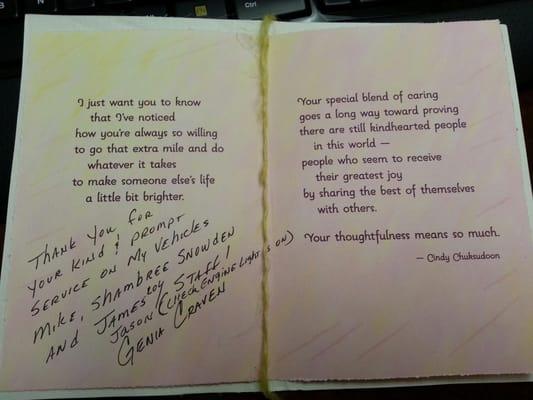 Ctrl
I just want you to know
that I've noticed
how you're always so willing
to go that extra mile and do
whatever it takes
to make someone else's life
a little bit brighter.
THANK YOU FOR
YOUR KIND & PROMPT
SERVICE ON MY VEHICLES
MIKE, SHAMBREE SNOWDEN
AND JAMES STAFF!
JASON (CHECK ENGINE LIGHT IS ON)
GENIA CRAVEN
Your special blend of caring
goes a long way toward proving
there are still kindhearted people
in this world —
people who seem to receive
their greatest joy
by sharing the best of themselves
with others.
Your thoughtfulness means so much.
— Cindy Chuksudoon